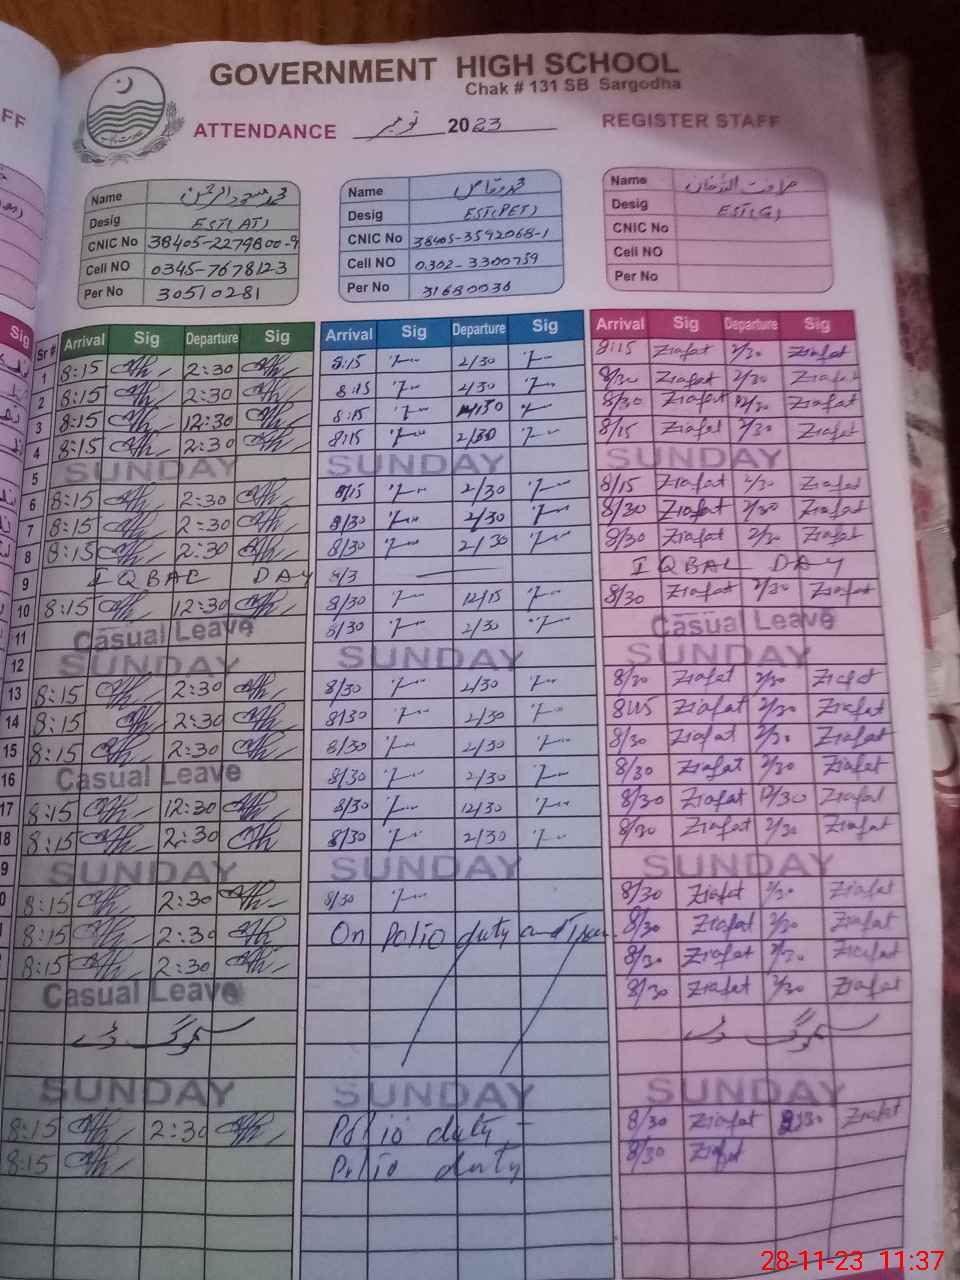 GOVERNMENT HIGH SCHOOL
Chak # 131 SB Sargodha
ATTENDANCE نومبر 2023 REGISTER STAFF
Name محمد مسعود الرحمن
Desig EST(AT)
CNIC No 38405-2279800-9
Cell NO 0345-7678123
Per No 30510281
Name محمد وقاص
Desig EST(PET)
CNIC No 38405-3592068-1
Cell NO 0302-3300759
Per No 31680036
Name
Desig EST(G)
CNIC No
Cell NO
Per No
Sr # Arrival Sig Departure Sig Arrival Sig Departure Sig Arrival Sig Departure Sig
1 8:15 2:30 8:15 2/30 8:15 Ziafat 2/30 Ziafat
2 8:15 2:30 8:15 2/30 8/30 Ziafat 2/30 Ziafat
3 8:15 12:30 8:15 8/30 Ziafat 12/30 Ziafat
4 8:15 2:30 8:15 2/30 8/15 Ziafat 2/30 Ziafat
5 SUNDAY SUNDAY SUNDAY
6 8:15 2:30 8/15 2/30 8/15 Ziafat 2/30 Ziafat
7 8:15 2:30 8/30 2/30 8/30 Ziafat 2/30 Ziafat
8 8:15 2:30 8/30 2/30 8/30 Ziafat 2/30 Ziafat
9 IQBAL DAY IQBAL DAY
10 8:15 12:30 8/30 12/15 8/30 Ziafat 2/30 Ziafat
11 Casual Leave 8/30 2/30 Casual Leave
12 SUNDAY SUNDAY SUNDAY
13 8:15 2:30 8/30 2/30 8/30 Ziafat 2/30 Ziafat
14 8:15 2:30 8/30 2/30 8:15 Ziafat 2/30 Ziafat
15 8:15 2:30 8/30 2/30 8/30 Ziafat 2/30 Ziafat
16 Casual Leave 8/30 2/30 8/30 Ziafat 2/30 Ziafat
17 8:15 12:30 8/30 12/30 8/30 Ziafat 12/30 Ziafat
18 8:15 2:30 8/30 2/30 8/30 Ziafat 2/30 Ziafat
9 SUNDAY SUNDAY SUNDAY
0 8:15 2:30 8/30 8/30 Ziafat 2/30 Ziafat
8:15 2:30 On Polio duty and 8/30 Ziafat 2/30 Ziafat
8:15 2:30 8/30 Ziafat 2/30 Ziafat
Casual Leave 8/30 Ziafat 2/30 Ziafat
SUNDAY SUNDAY SUNDAY
8:15 2:30 Polio duty 8/30 Ziafat 2:30 Ziafat
8:15 Polio duty 8/30 Ziafat
28-11-23 11:37